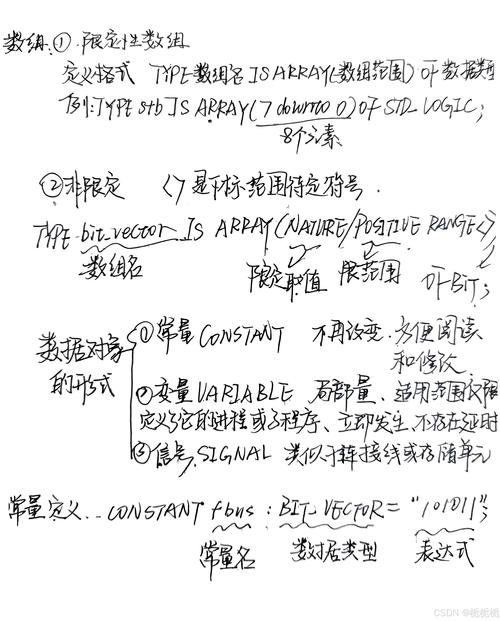 数组:① 限定性数组
定义格式 TYPE 数组名 IS ARRAY(数组范围) OF 数据类型
例:TYPE stb IS ARRAY(7 downto 0) OF STD_LOGIC;
8个元素
②非限定 <>是下标范围待定符号.
TYPE bit_vector IS ARRAY(NATURE/POSITIVE RANGE<>)
数组名 限定取值 限范围 OF BIT;
①常量 CONSTANT 不再改变.方便阅读
数据对象 和修改.
的形式 ②变量 VARIABLE 局部量、适用范围仅限
定义了它的进程或子程序、立即发生,不存在延时
③信号 SIGNAL 类似于连接线或存储单元
常量定义.. CONSTANT fbus : BIT_VECTOR= "101011";
常量名 数据类型 表达式
CSDN @栀栀栀